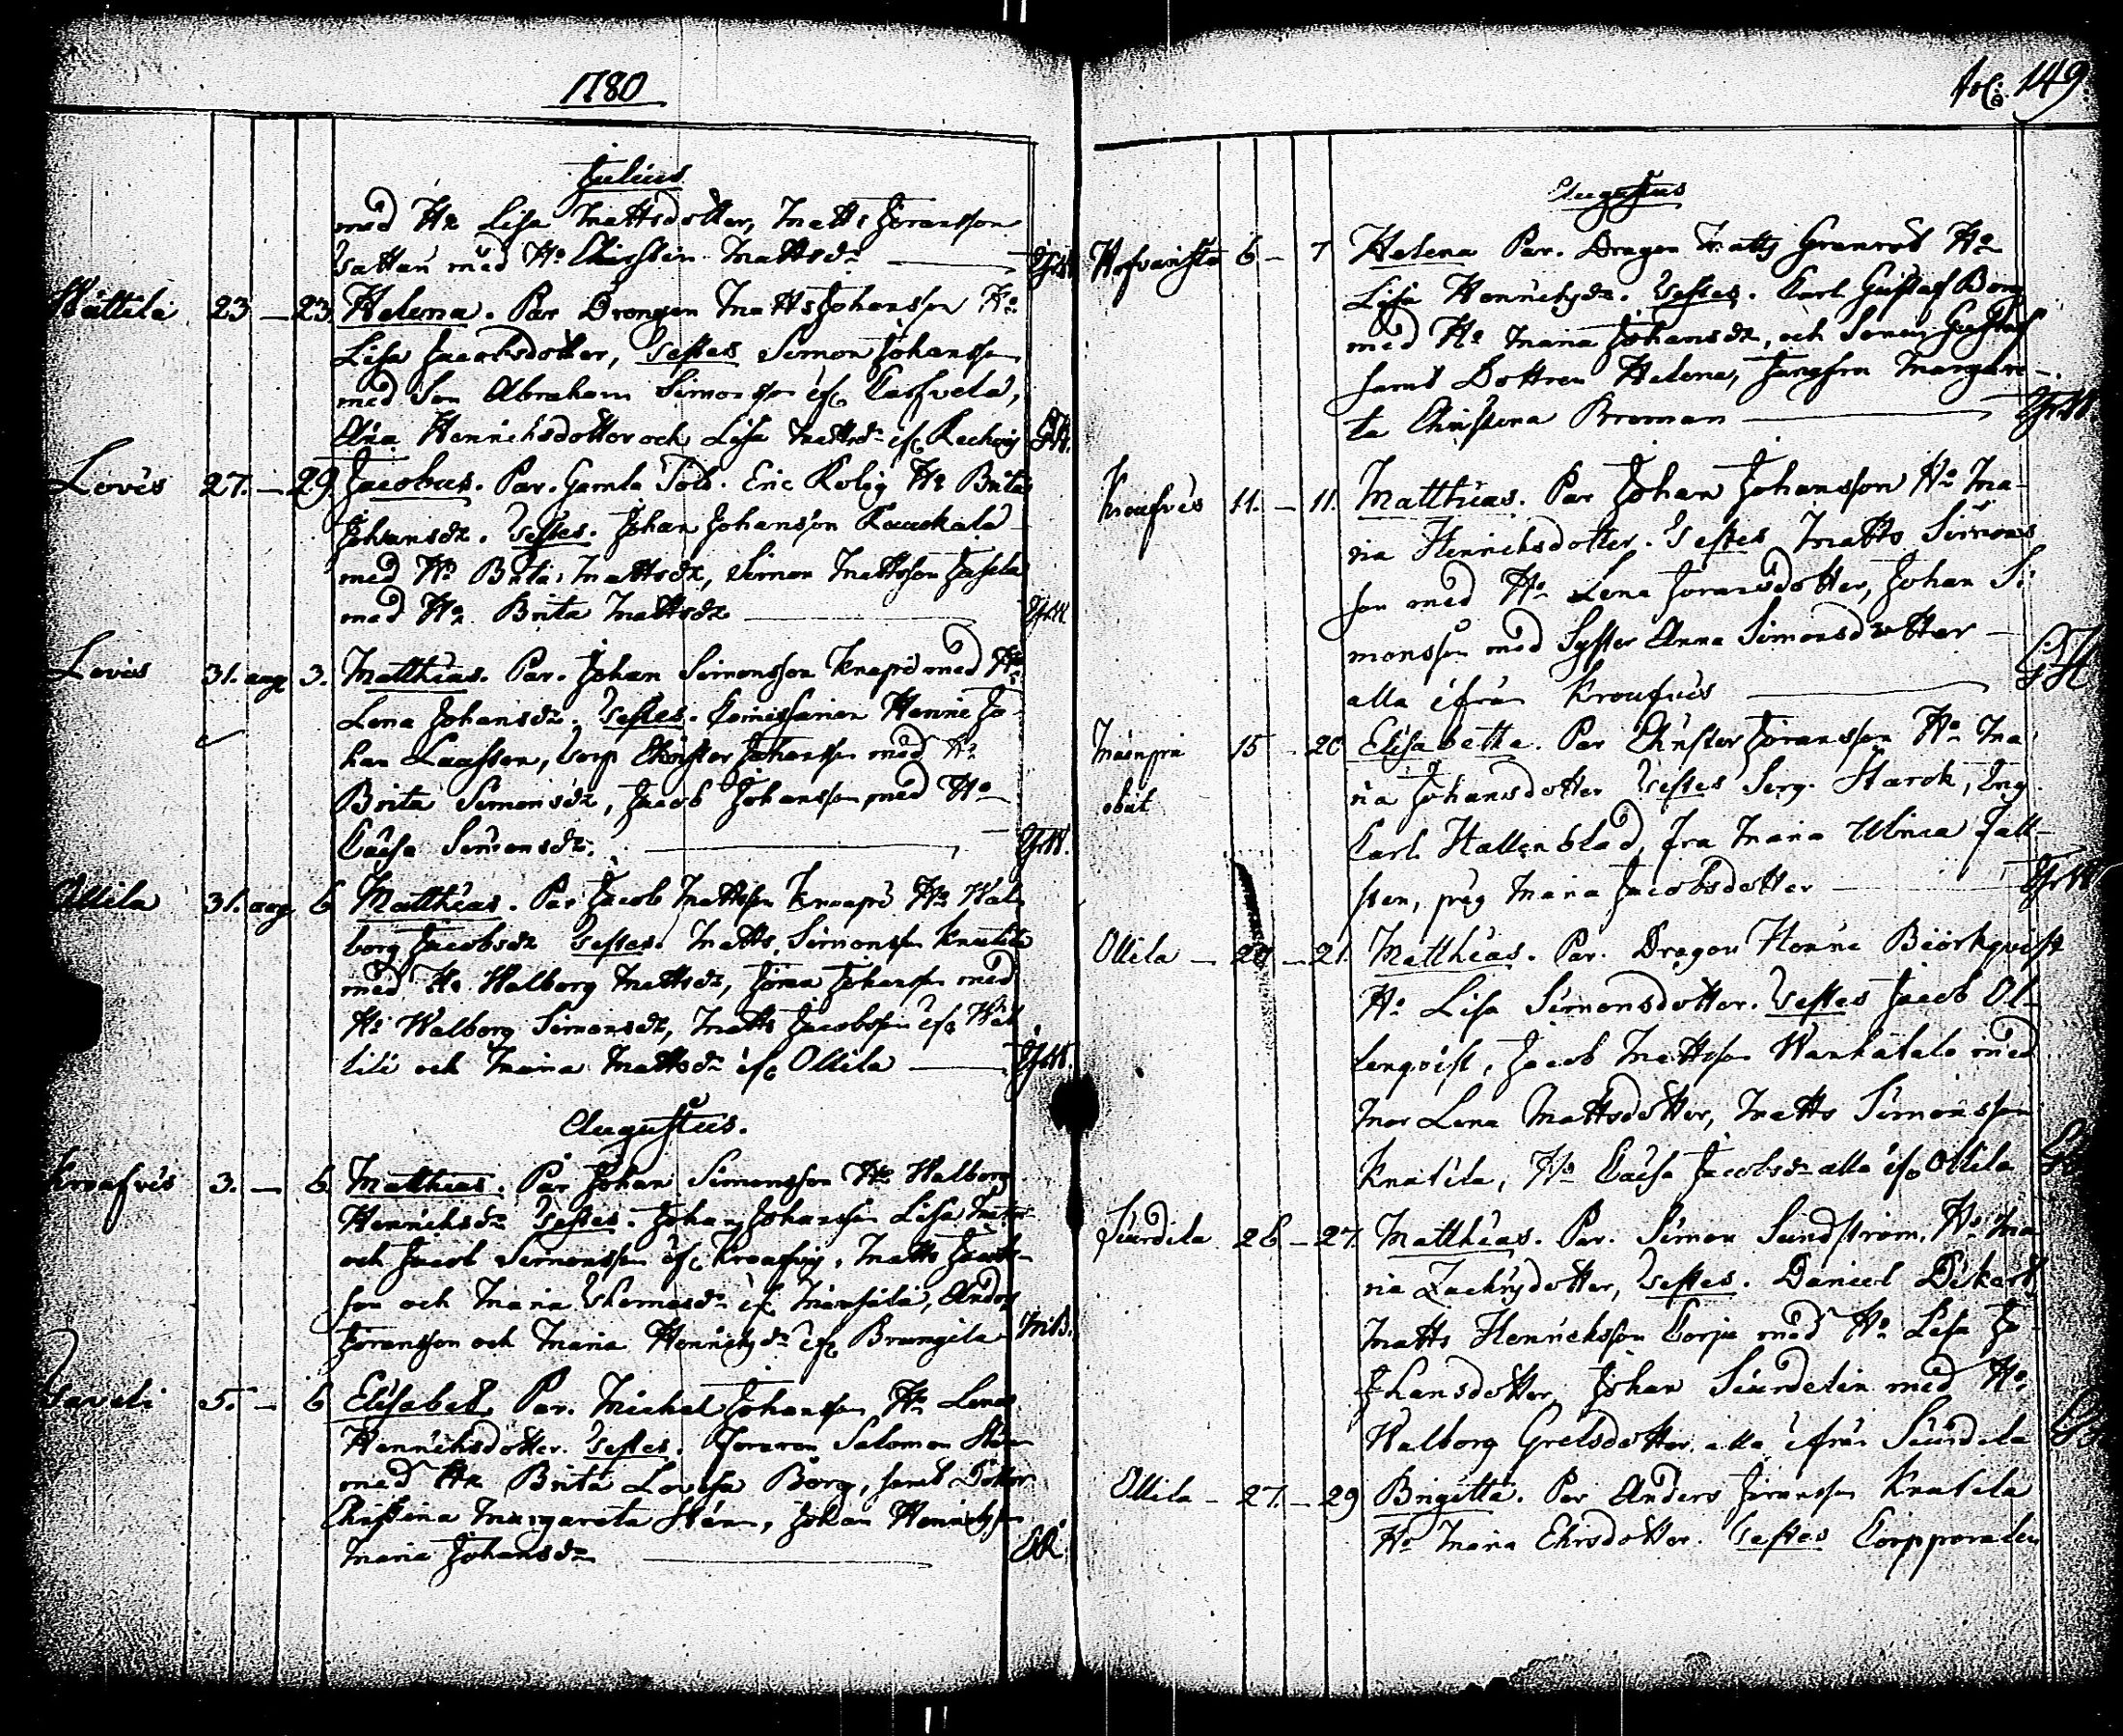 1780
Julius
med H:u Lisa Mattsdotter, Matts Jöransson
med H:o Christin Mattsdr
Wättilä 23 — 23. Helena. Par Dragon Matts Johansson H:o
Lisa Jacobsdotter, Testes Simon Johansson
med Son Abraham Simonsson if:
Anna Henrichsdotter och Lisa Mattsdr if:
Lovis 27. — 29. Jacobus. Par. Gamla Sold. Eric Rolig H:o Brita
Johansdr. Testes. Johan Johansson
med H:o Brita Mattsdr, Simon Mattsson
med H:o Brita Mattsdr
Lovis 31. aug 3. Matthias. Par. Johan Simonsson Knapi med H:o
Lena Johansdr. Testes. Henric Jo-
han, Corp Christer Johansson med H:o
Brita Simonsdr, Jacob Johansson med H:o
Caisa Simonsdr.
Ollila 31. aug 6 Matthias. Par Jacob Mattsson Knaapi H:o Wal-
borg Jacobsdr Testes. Matts Simonsson Knutila
med H:o Walborg Mattsdr, Jöran Johansson med
H:o Walborg Simonsdr, Matts Jacobsson if: Wät
tilä och Maria Mattsdr if: Ollila
Augustus.
Kroufvis 3. — 6 Matthias. Par Johan Simonsson H:o Walborg
Henrichsdr Testes. Johan Johansson Lisa
och Jacob Simonsson if: Kroufvis, Matts Jacobs-
son och Maria Thomasdr if:, Anders
Jöransson och Maria Henrichsdr if: M.B.
5. — 6 Elisabet. Par. Michel Johansson H:o Lena
Henrichsdotter. Testes. Salomon
med H:u Brita Lovisa Borg, samt Dotter
Christina Margareta, Johan Henrichsson
Maria Johansdr
Fol: 149.
Augustus
6 — 7 Helena Par. Dragon Matts Granrot H:o
Lisa Henrichsdr. Testes. Carl Gustaf Borg
med H:o Maria Johansdr, och Sonen Gustaf
samt Dottren Helena, Jungfru Margare-
ta Christina Broman
Kroufvis 11. — 11. Matthias. Par Johan Johansson H:o Ma-
ria Henrichsdotter. Testes Matts Simons
son med H:o Lena Jöransdotter, Johan Si-
monsson med Syster Anna Simonsdotter
alla ifrån Kroufvis
15 — 20 Elisabetha. Par Christer Jöransson H:o Ma
ria Johansdotter Testes Serg. Starck, Yng.
Carl Hallenblad, fru Maria Ulrica Fall-
sten, pig Maria Jacobsdotter
Ollila — 20 — 21. Matthias. Par. Dragon Henric Biörkqvist
H:o Lisa Simonsdotter. Testes Jacob Ol-
lenqvist, Jacob Mattsson Wankatalo med
Mor Lena Mattsdotter, Matts Simonsson
Knutila, H:o Caisa Jacobsdr alla if: Ollila
Siurdila 26 — 27. Matthias. Par. Simon Sundström. H:o Ma
ria Zachrisdotter, Testes. Daniel Dikert
Matts Henricksson Corpi med H:o Lisa Jo-
hansdotter, Johan Siurdelin med H:o
Walborg Grelsdotter, alla ifrån Siurdila
Ollila — 27. — 29 Brigitta. Par Anders Jöransson Knutila
H:o Maria Ehrsdotter. Testes Corpporalen